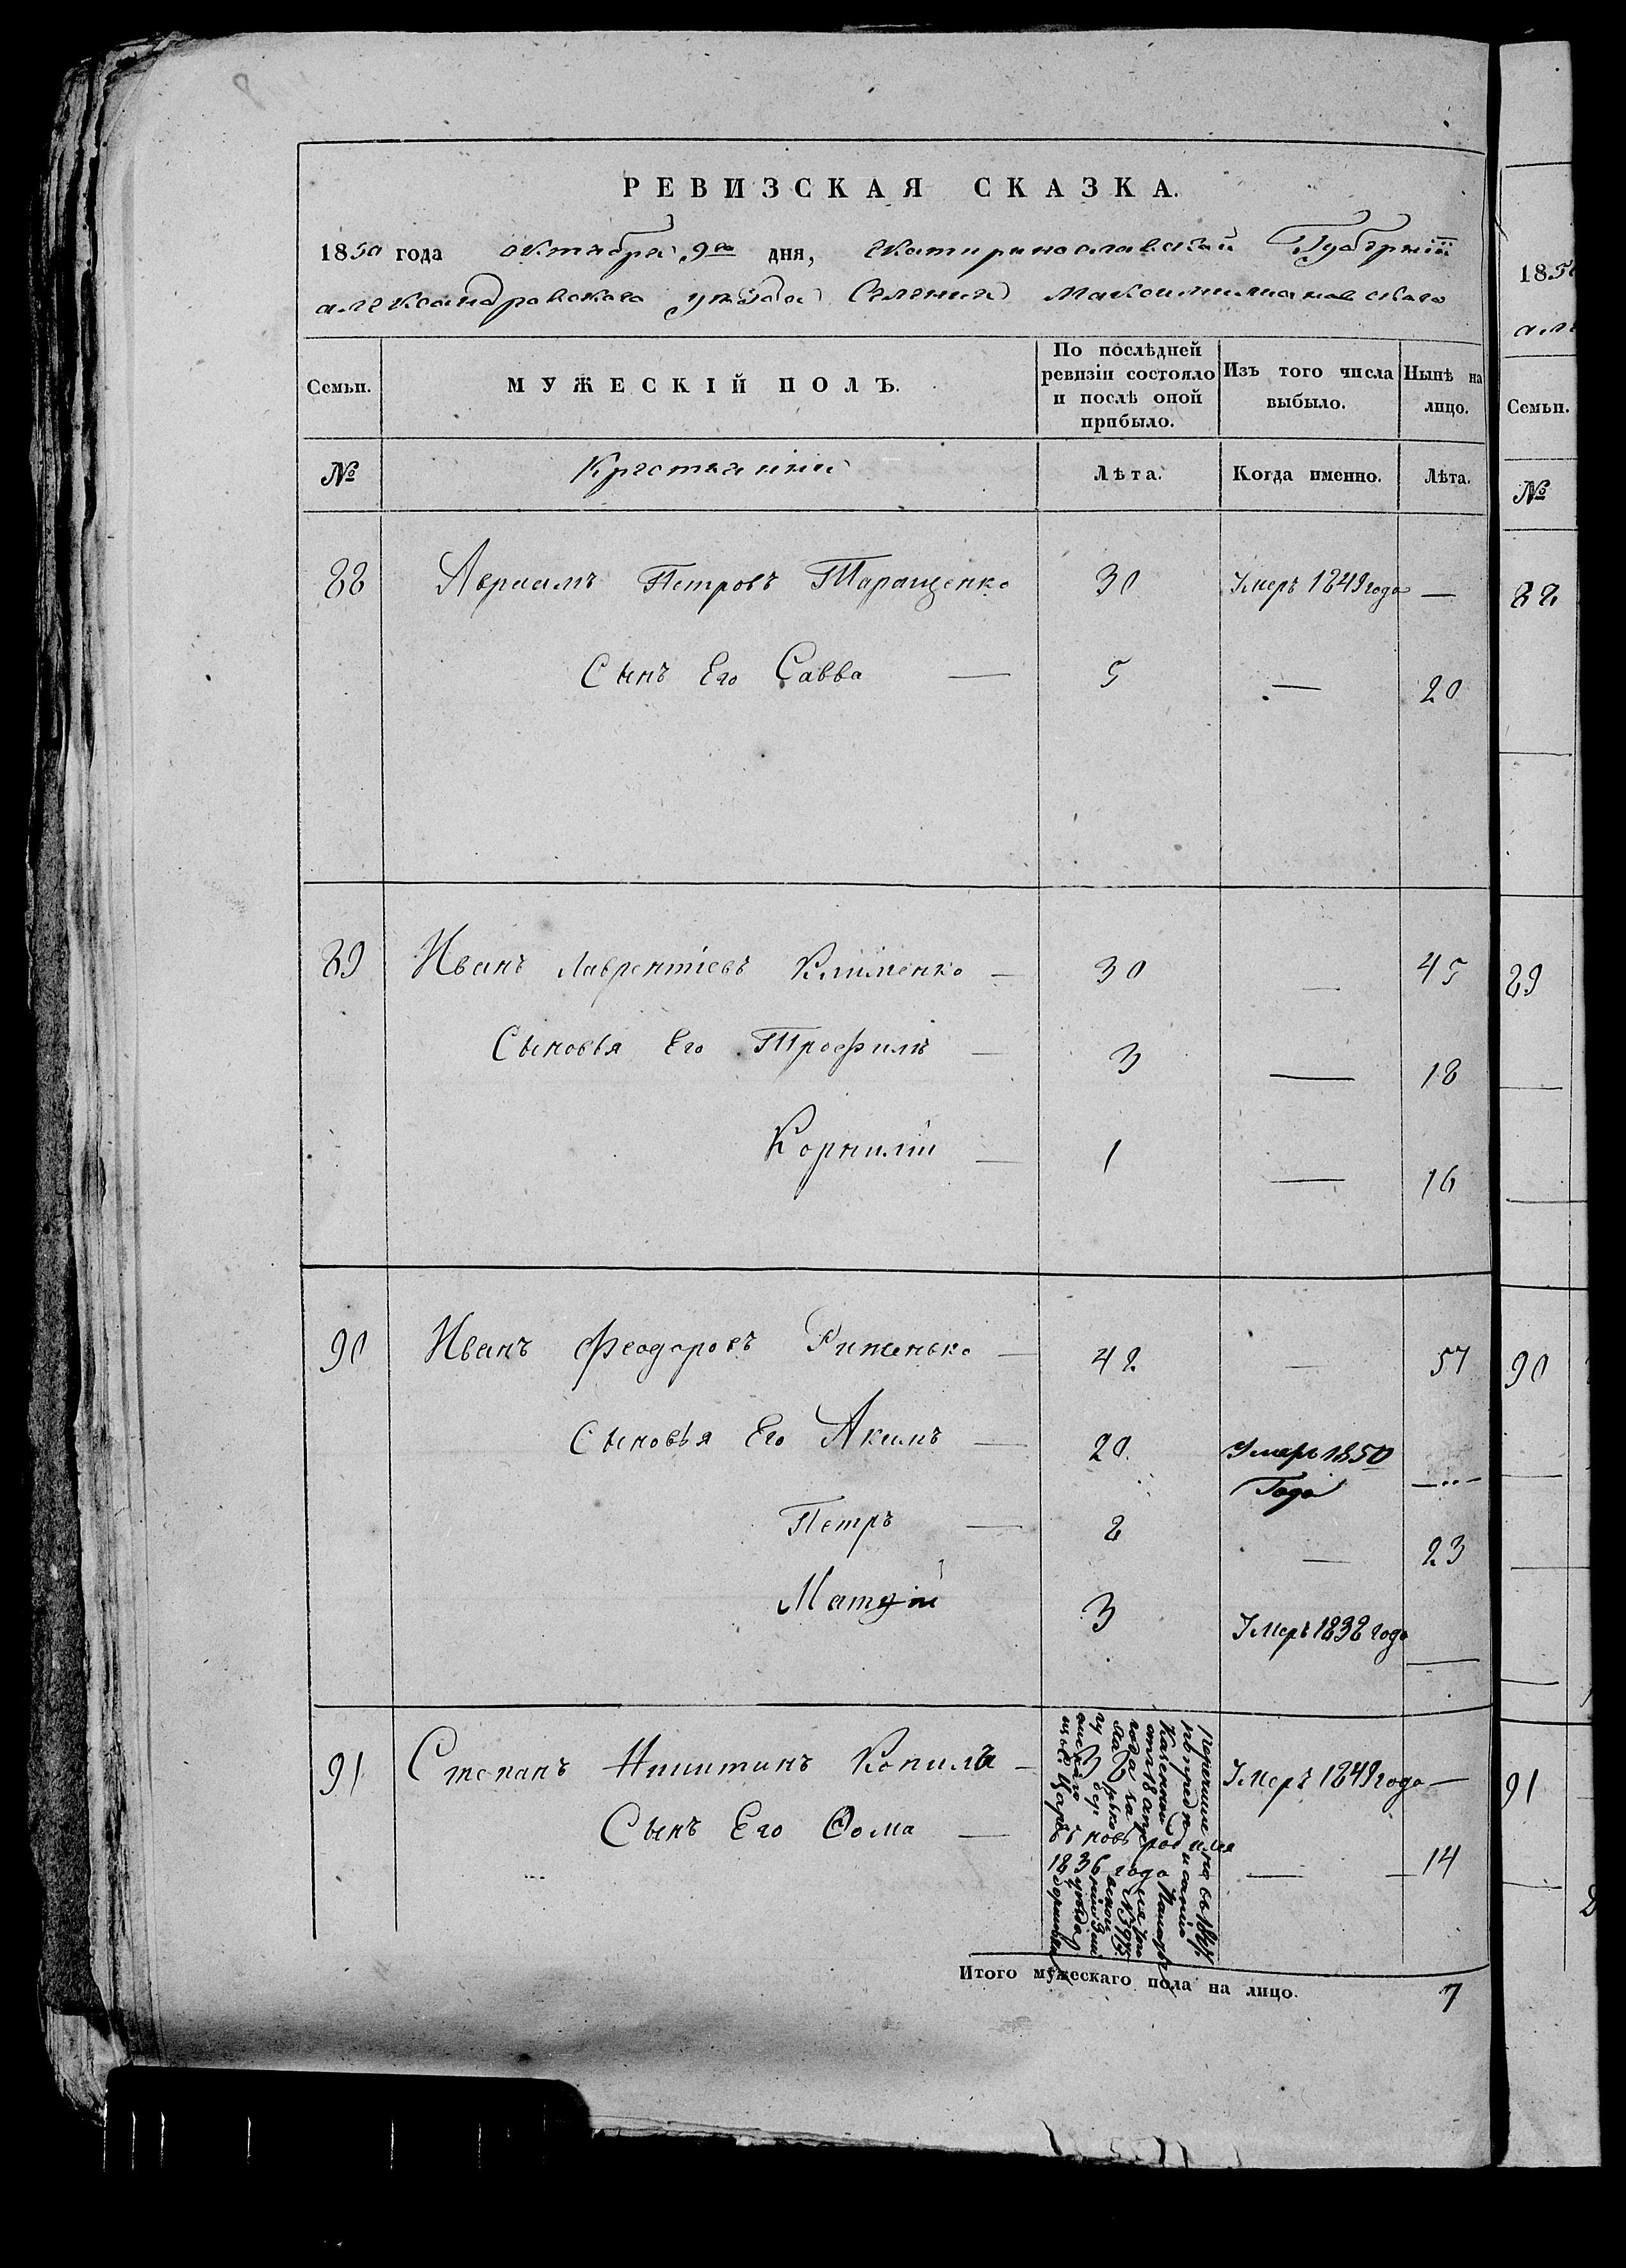 РЕВИЗСКАЯ СКАЗКА.
1850 года октября 9го дня, Екатиринославской Губернiи
александровского уѣзда Селенiя Максимилиановского
Семьи.
МУЖЕСКIЙ ПОЛЪ.
По послѣдней ревизiи состояло и послѣ оной прибыло.
Изъ того числа выбыло.
Нынѣ на лицо.
№
Крестьянии
Лѣта.
Когда именно.
Лѣта.
88 Авраамъ Петровъ Таращенко 30 Умеръ 1849 года —
Сынъ Его Савва — 5 — 20
89 Иванъ Лаврентiевъ Клименко — 30 — 45
Сыновья Его Трофимъ — 3 — 18
Корнилiй — 1 — 16
90 Иванъ Феодоровъ — 42 — 57
Сыновья Его Акимъ — 20 Умеръ 1850 Года —
Петръ — 8 — 23
Матѳiй 3 Умеръ 1838 года —
91 Степанъ Никитинъ Копилъ — Умеръ 1849 года —
Сынъ Его Ѳома — вновь родился 1836 года — 14
Итого мужескаго пола на лицо. 7
185
Семьи.
№
88
89
90
91